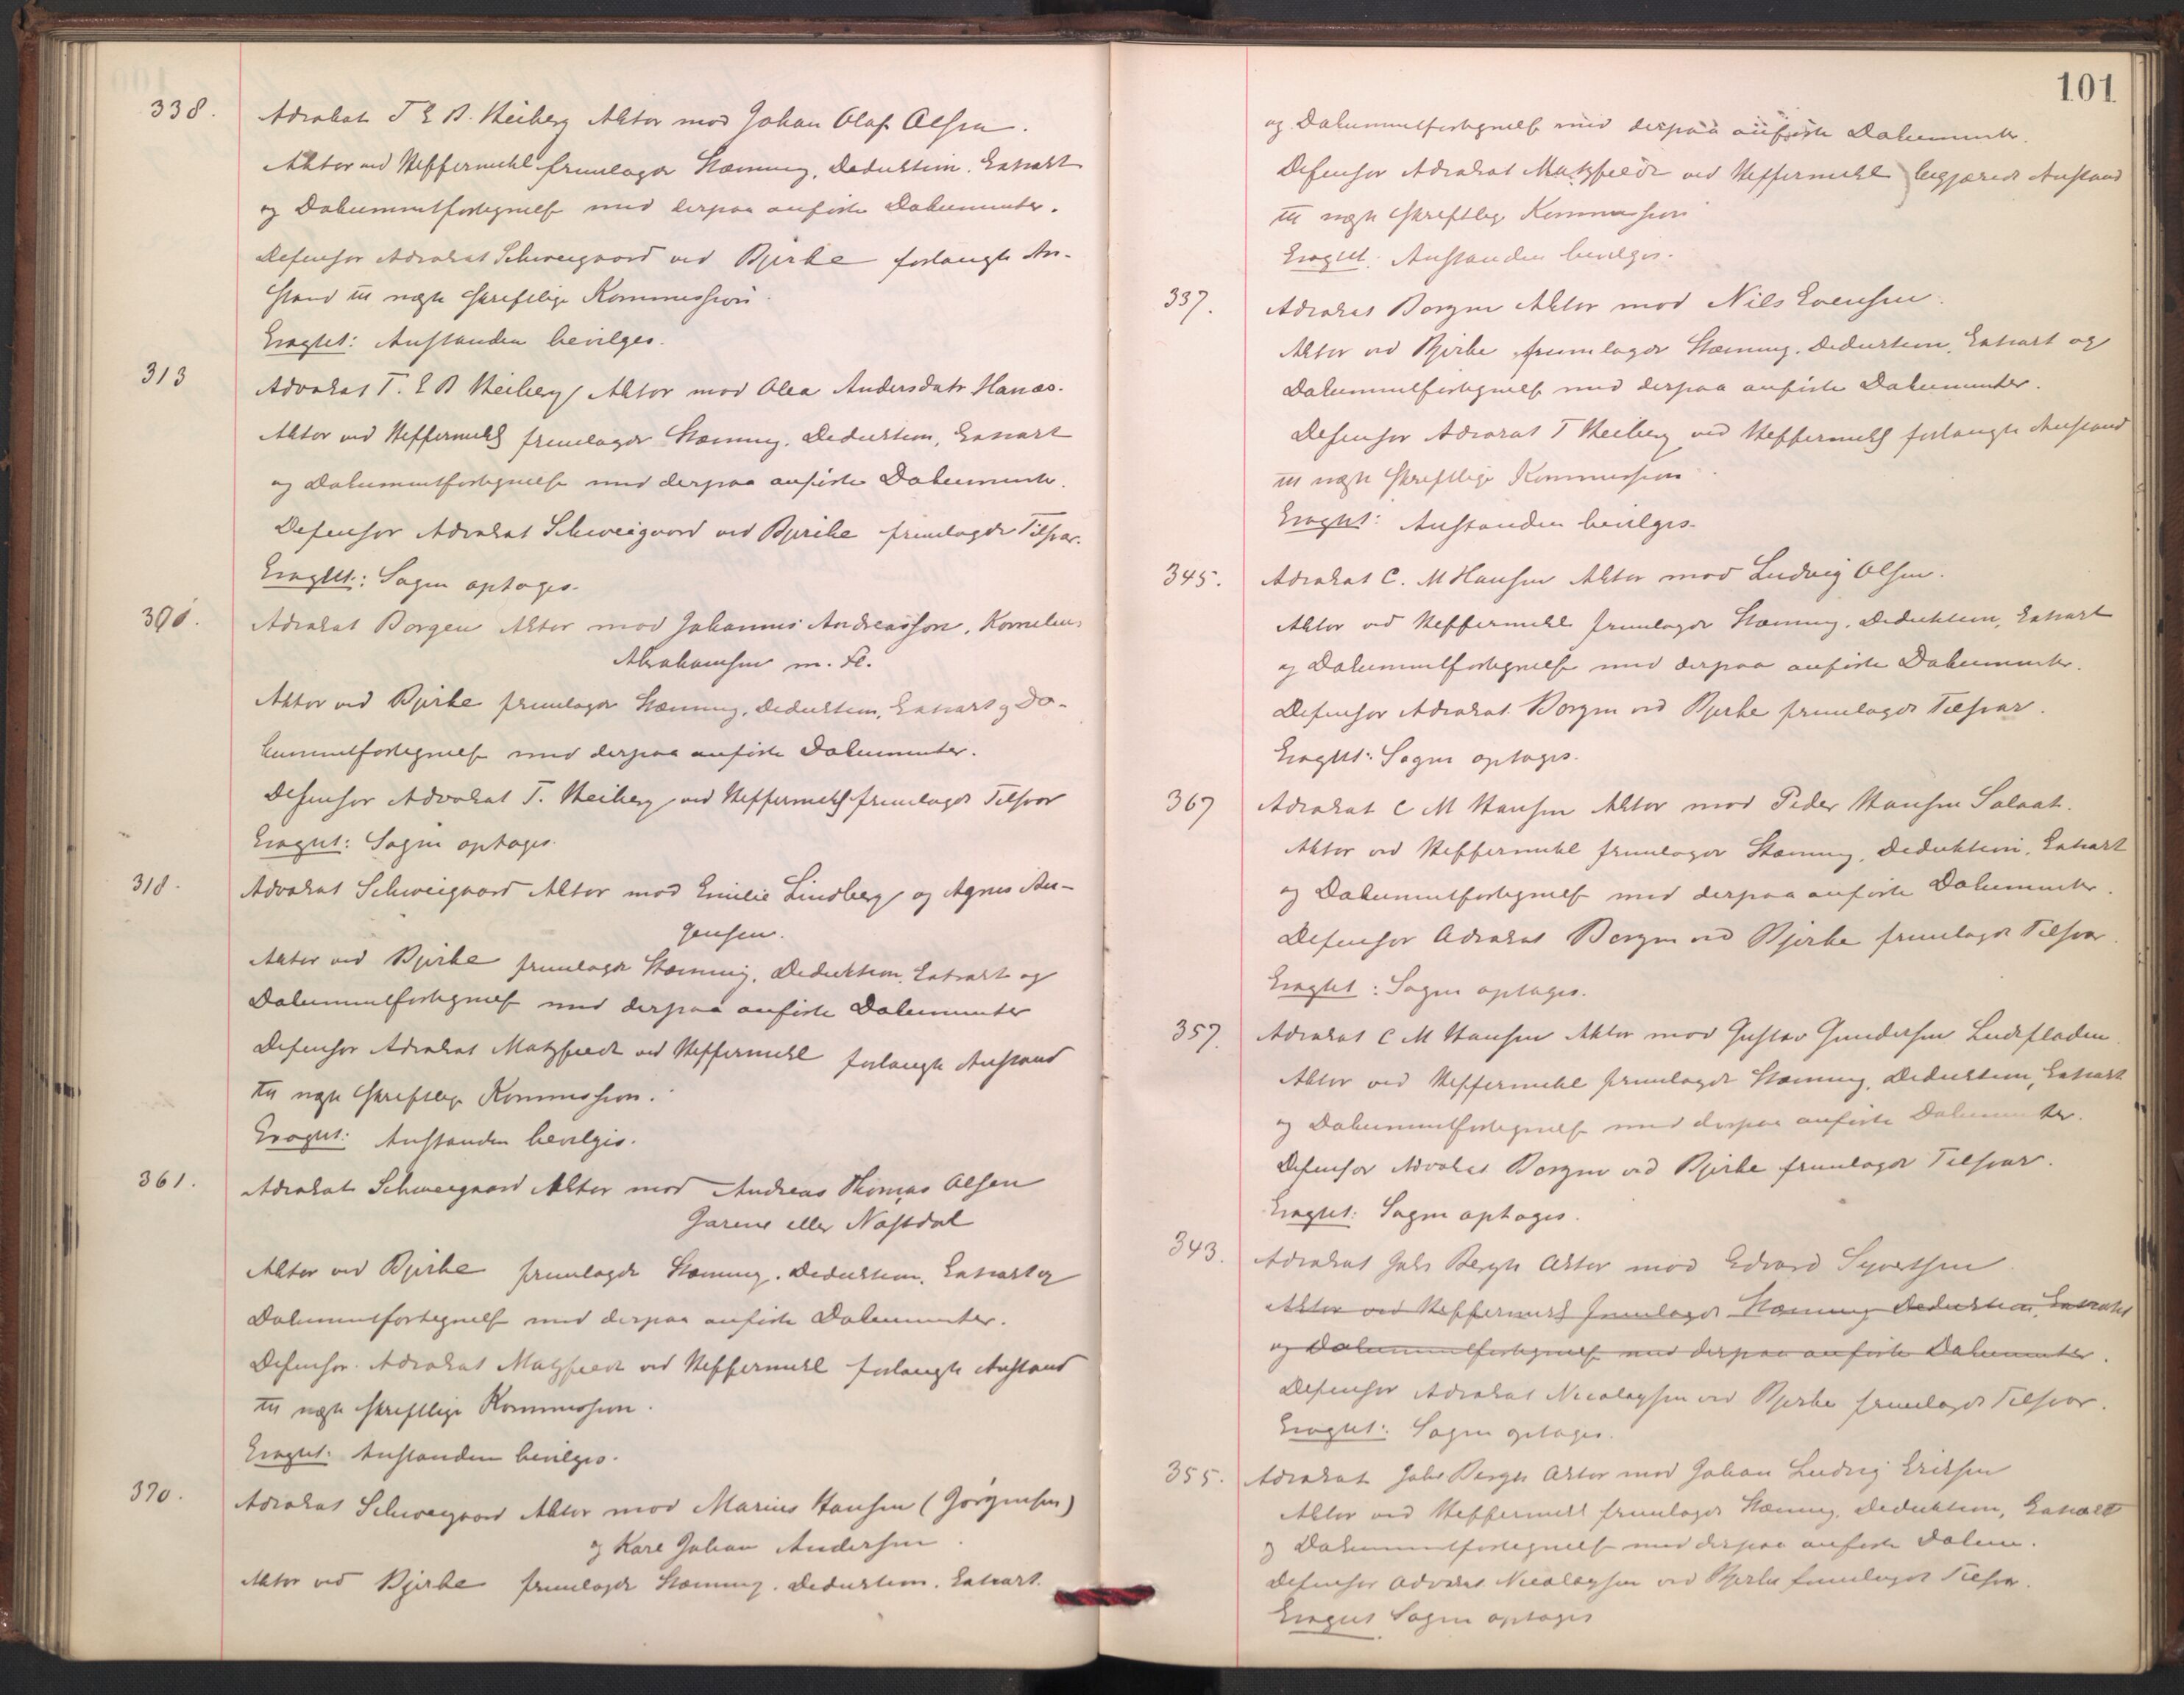 338. Advokat T E B. Heiberg Aktor mod Johan Olaf Olsen.
Aktor ved Heffermehl fremlagde Stævning, Deduktion, Extrakt
og Dokumentfortegnelse med derpaa anførte Dokumenter.
Defensor Advokat Schweigaard ved Bjerke forlangte An-
stand til næste skriftlige Kommission.
Eragtet: Anstanden bevilges.
313 Advokat T. E B Heiberg Aktor mod Olea Andersdatr Hanæs.
Aktor ved Heffermehl fremlagde Stævning, Deduktion, Extrakt
og Dokumentfortegnelse med derpaa anførte Dokumenter.
Defensor Advokat Schweigaard ved Bjerke fremlagde Tilsvar.
Eragtet: Sagen optages.
390. Advokat Borgen Aktor mod Johannes Andreassen, Kornelius
Abrahamsen m. Fl.
Aktor ved Bjerke fremlagde Stævning, Deduktion, Extrakt og Do-
kumentfortegnelse med derpaa anførte Dokumenter.
Defensor Advokat T. Heiberg ved Heffermehl fremlagde Tilsvar
Eragtet: Sagen optages.
318. Advokat Schweigaard Aktor mod Emilie Lindberg og Agnes Au-
gensen.
Aktor ved Bjerke fremlagde Stævning, Deduktion, Extrakt og
Dokumentfortegnelse med derpaa anførte Dokumenter
Defensor Advokat Matzfeldt ved Heffermehl forlangte Anstand
til næste skriftlige Kommission.
Eragtet: Anstanden bevilges.
361. Advokat Schweigaard Aktor mod Andreas Thomas Olsen
Garene eller Nastdal
Aktor ved Bjerke fremlagde Stævning, Deduktion, Extrakt og
Dokumentfortegnelse med derpaa anførte Dokumenter.
Defensor Advokat Matzfeldt ved Heffermehl forlangte Anstand
til næste skriftlige Kommission.
Eragtet: Anstanden bevilges.
370. Advokat Schweigaard Aktor mod Marius Hansen (Jørgensen)
og Karl Johan Andersen.
Aktor ved Bjerke fremlagde Stævning, Deduktion, Extrakt.
101
og Dokumentfortegnelse med derpaa anførte Dokumenter.
Defensor Advokat Matzfeldt ved Heffermehl begjærede Anstand
til næste skriftlige Kommission
Eragtet: Anstanden bevilges.
337. Advokat Borgen Aktor mod Nils Evensen.
Aktor ved Bjerke fremlagde Stævning, Deduktion, Extrakt og
Dokumentfortegnelse med derpaa anførte Dokumenter.
Defensor Advokat T Heiberg ved Heffermehl forlangte Anstand
til næste skriftlige Kommission.
Eragtet: Anstanden bevilges.
345. Advokat C. M Hansen Aktor mod Ludvig Olsen.
Aktor ved Heffermehl fremlagde Stævning, Deduktion, Extrakt
og Dokumentfortegnelse med derpaa anførte Dokumenter.
Defensor Advokat Borgen ved Bjerke fremlagde Tilsvar.
Eragtet: Sagen optages.
367 Advokat C M Hansen Aktor mod Peder Hansen Salaat.
Aktor ved Heffermehl fremlagde Stævning, Deduktion, Extrakt
og Dokumentfortegnelse med derpaa anførte Dokumenter.
Defensor Advokat Borgen ved Bjerke fremlagde Tilsvar.
Eragtet: Sagen optages.
357. Advokat C M Hansen Aktor mod Gustav Gundersen Ludefladen.
Aktor ved Heffermehl fremlagde Stævning, Deduktion, Extrakt
og Dokumentfortegnelse med derpaa anførte Dokumenter.
Defensor Advokat Borgen ved Bjerke fremlagde Tilsvar.
Eragtet: Sagen optages.
343. Advokat Johs Bergh Aktor mod Edvard Syvertsen
Aktor ved Heffermehl fremlagde Stævning Deduktion, Extrakt
og Dokumentfortegnelse med derpaa anførte Dokumenter.
Defensor Advokat Nicolaysen ved Bjerke fremlagde Tilsvar.
Eragtet: Sagen optages.
355. Advokat Johs Bergh Aktor mod Johan Ludvig Eriksen
Aktor ved Heffermehl fremlagde Stævning, Deduktion, Extrakt
og Dokumentfortegnelse med derpaa anførte Dokum.
Defensor Advokat Nicolaysen ved Bjerke fremlagde Tilsvar.
Eragtet Sagen optages